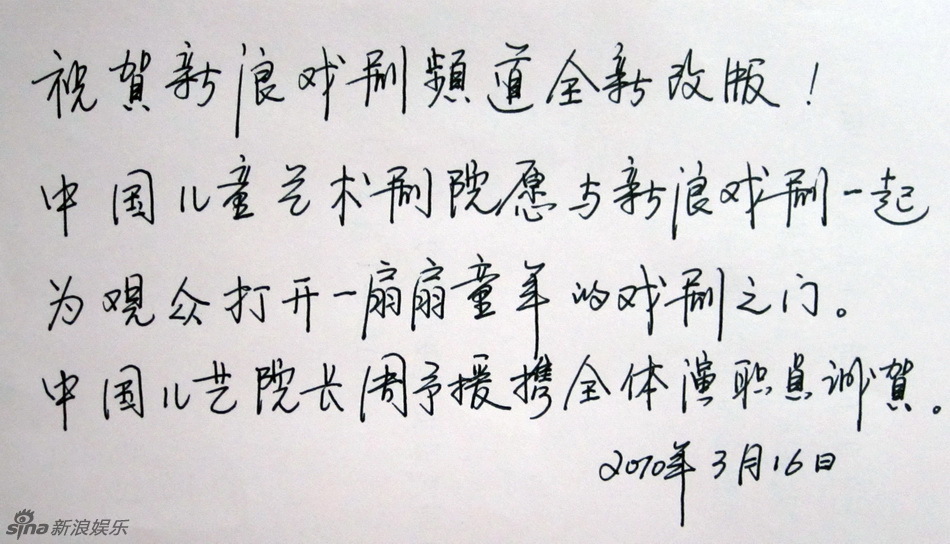 祝賀新浪戏剧頻道全新改版！
中国儿童艺术剧院愿与新浪戏剧一起
为观众打开一扇扇童年的戏剧之门。
中国儿艺院长周予援携全体演职员诚賀。
2010年3月16日
sina新浪娱乐